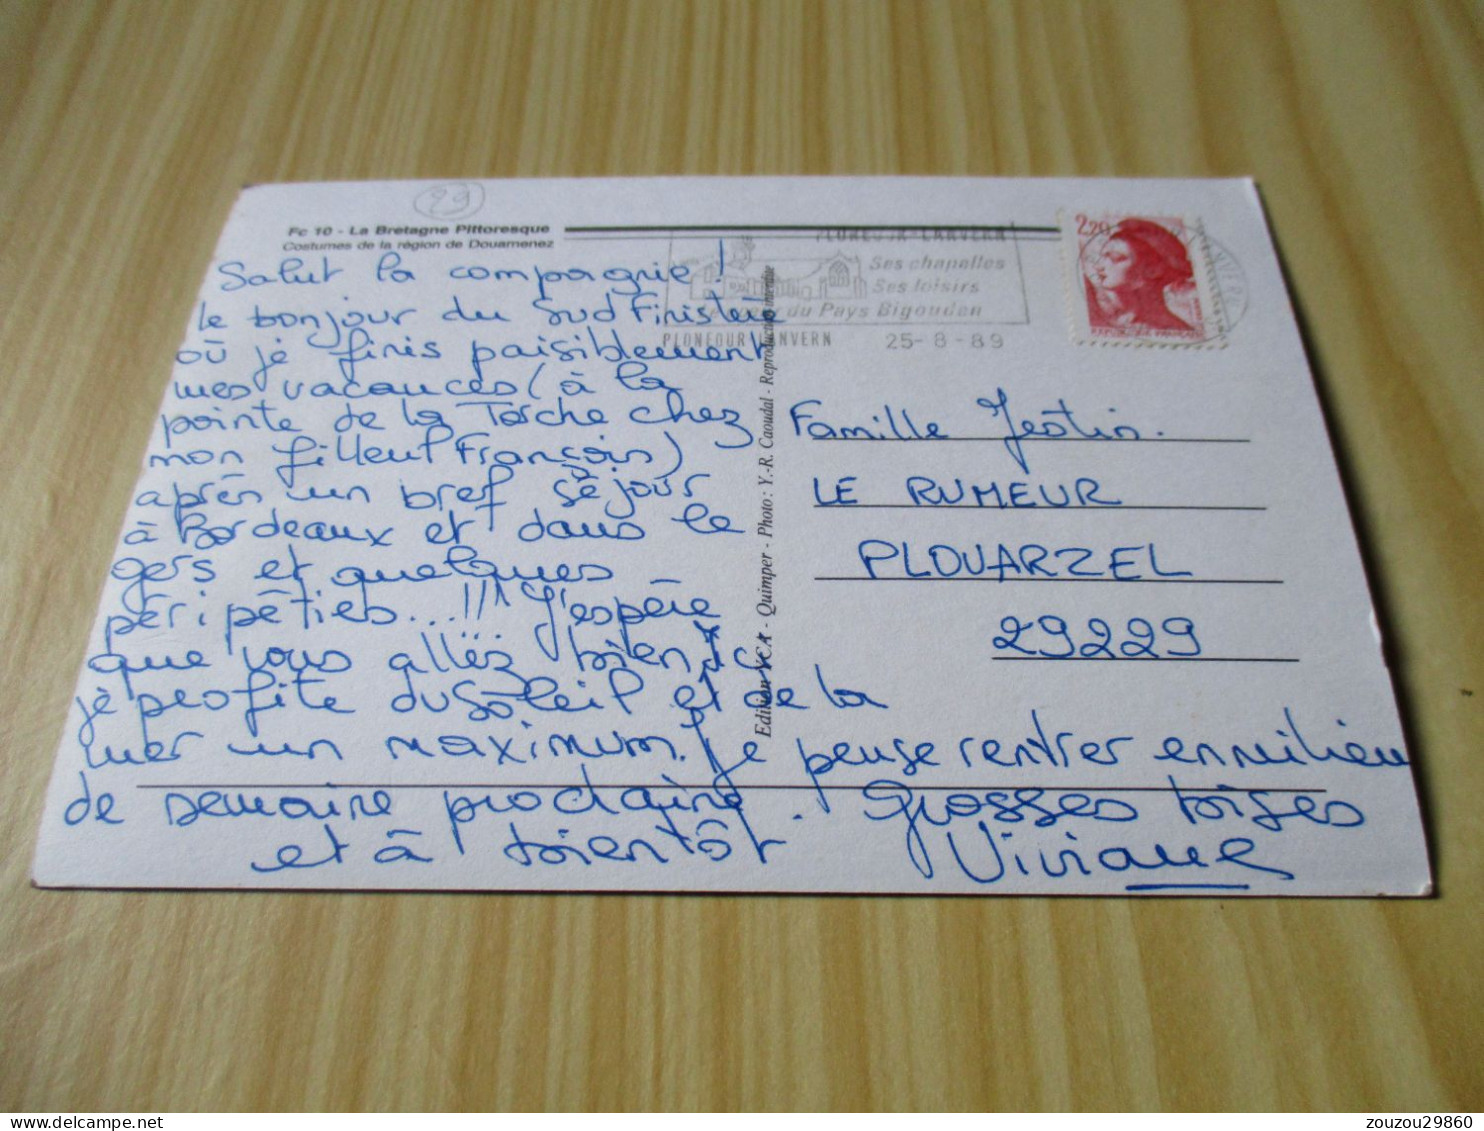 29
Fc 10 - La Bretagne Pittoresque
Costumes de la région de Douarnenez
Salut la compagnie !
le bonjour du Sud Finistère
où je finis paisiblement
mes vacances (à la
pointe de la Torche chez
mon filleul François)
après un bref séjour
à Bordeaux et dans le
gers et quelques
péripéties...!!! J'espère
que vous allez bien
je profite du soleil et de la
mer un maximum. Je pense rentrer en milieu
de semaine prochaine. Grosses bises
et à bientôt Viviane
Edition YCA - Quimper - Photo : Y.-R. Caoudal - Reproduction interdite
PLONEOUR-LANVERN
Ses chapelles
Ses loisirs
du Pays Bigouden
PLONEOUR LANVERN 25-8-89
2,20
REPUBLIQUE FRANÇAISE
Famille Jestin.
LE RUMEUR
PLOUARZEL
29229
zouzou29860